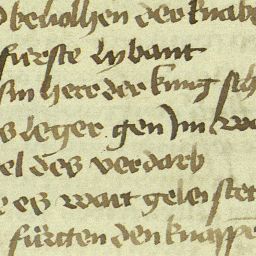 beuolhen der knab
fürste lybant
sin herr der kung sch
s leger gen Im wa
el des verdarb
e es wart geleistet
fürten den knappe